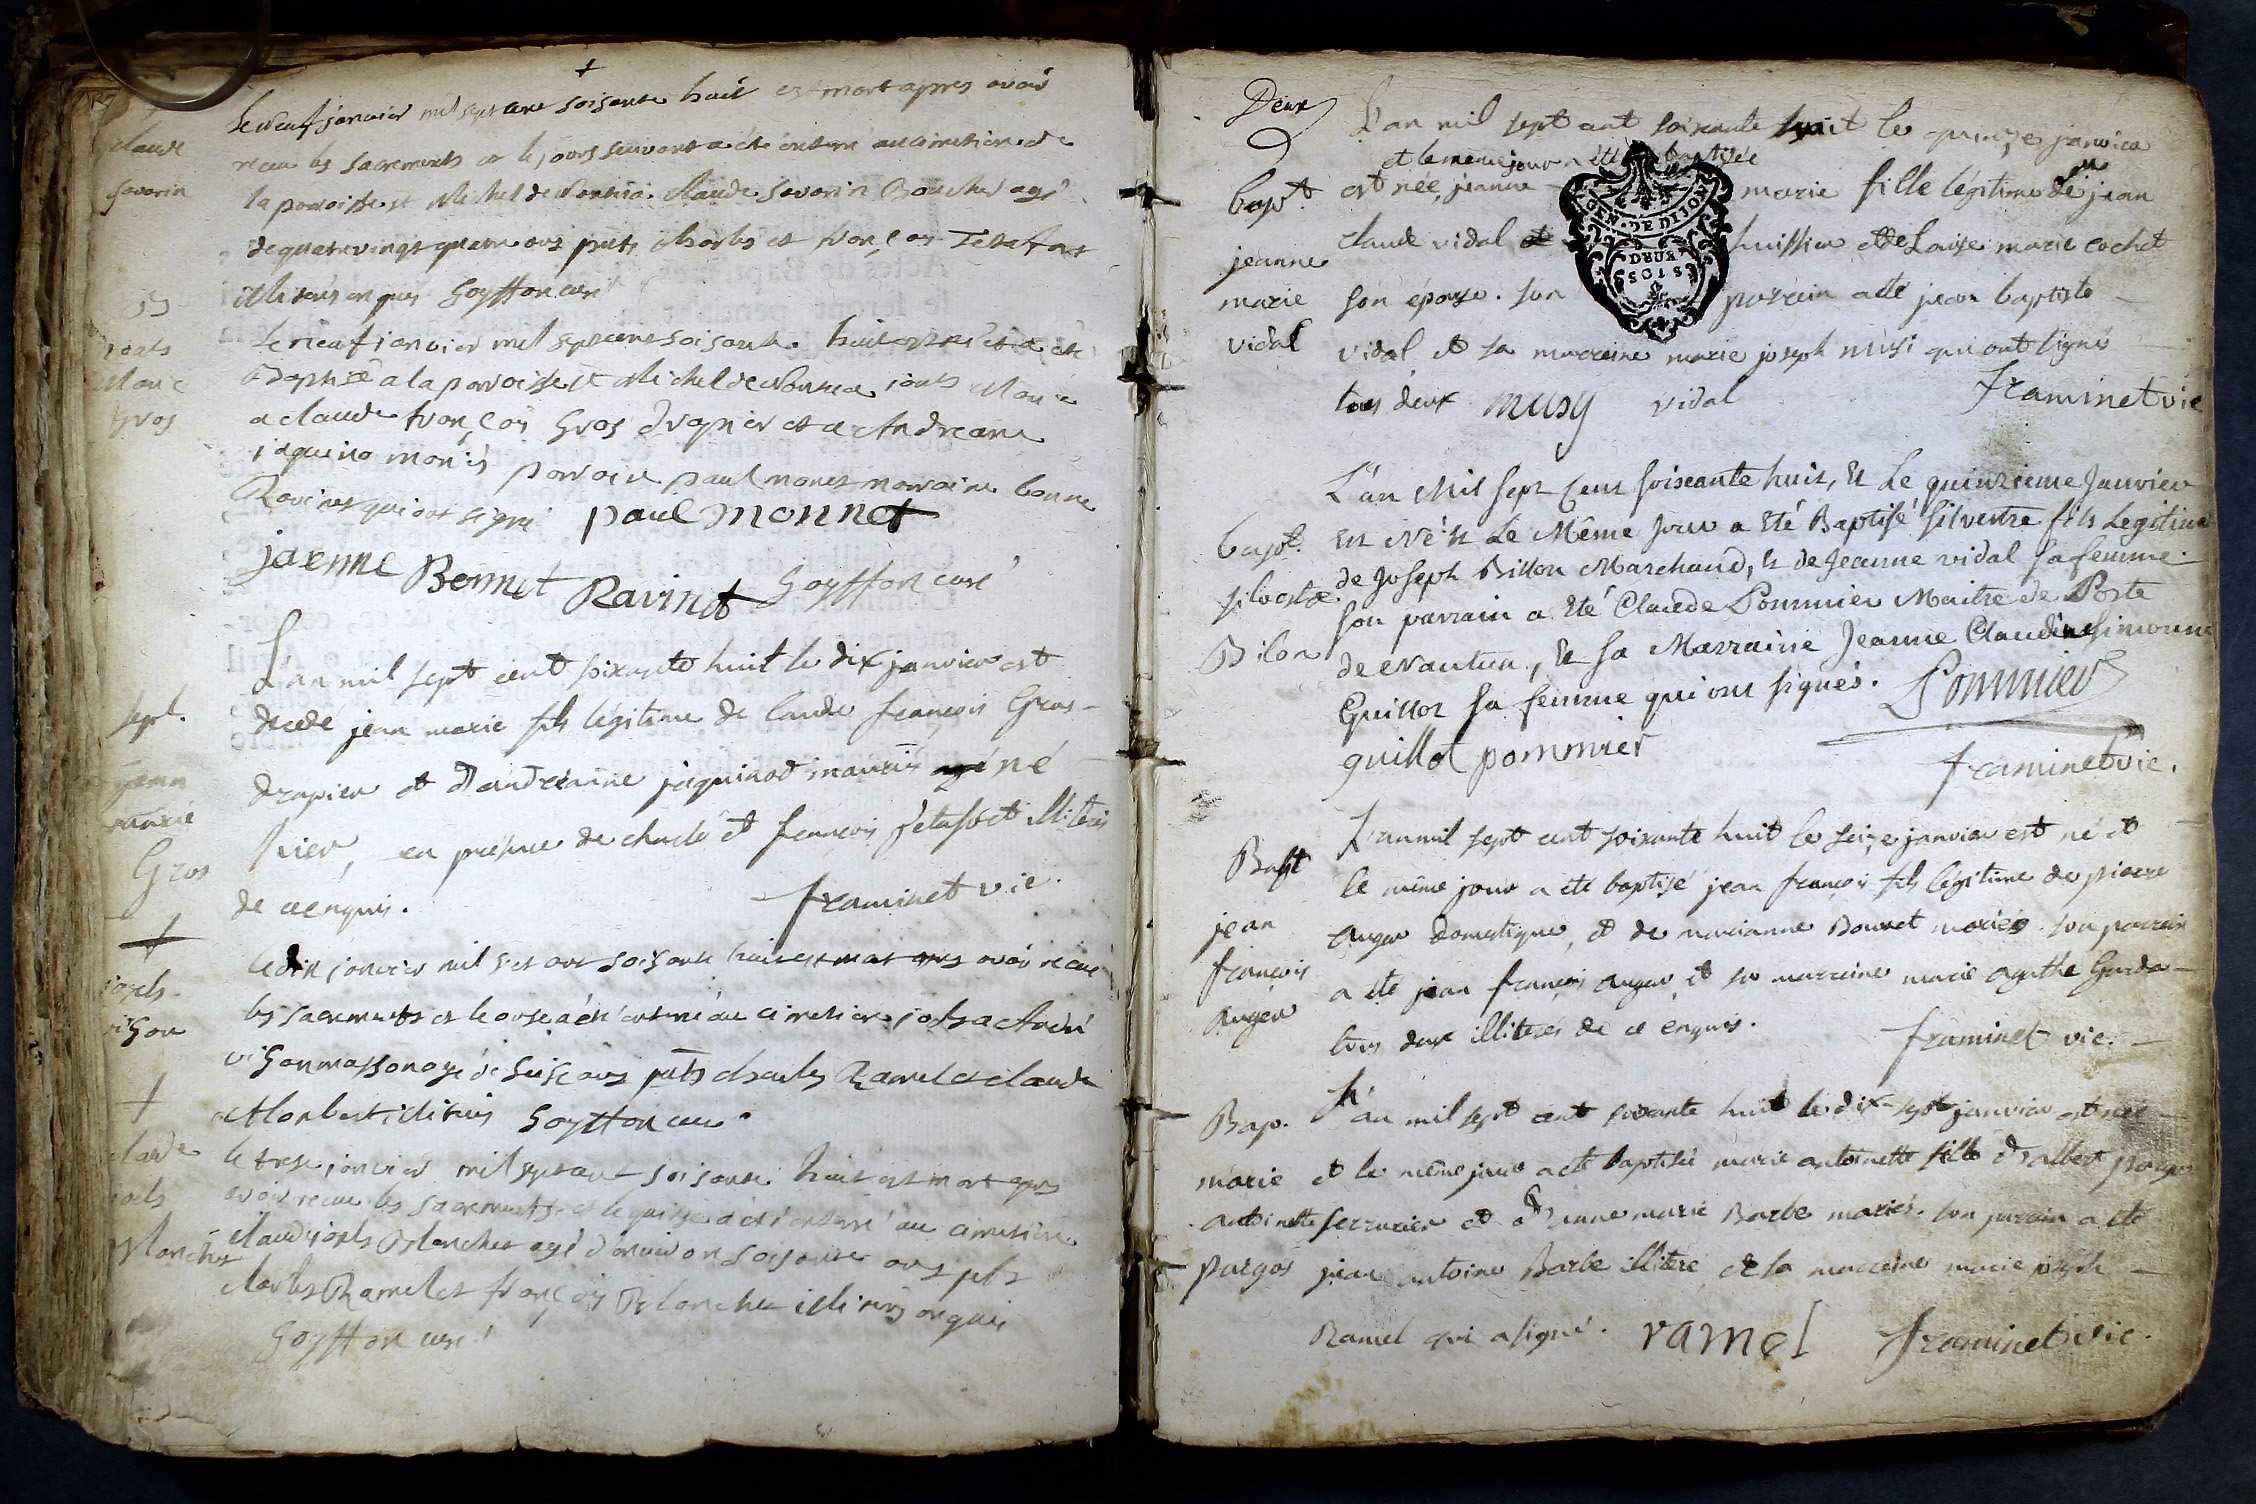 claude
savarin
Le neuf janvier mil sept cent soisante huit est mort apres avoir
recu les sacrements et le jours suivant a été enterré au cimetiere de
la paroisse st Michel de claude savarin Boucher agé
de quatrevingt quatre ans pnts charles et françois Tetafort
illiterés enquis Goyffon curé
Marie
gros
le neuf janvier mil sept cent soisante huit est né et a été
baptisé a la paroisse st Michel de jean Marie
a claude françois Gros drapier et a Andreane
jaquino mariés parrain paul monet marraine bonne
Ravinet qui ont signé paul monnet
jaenne Bonnet Ravinet Goyffon curé
sepl.
jean
marie
Gros
L'an mil sept cent soixante huit le dix janvier est
decede jean marie fils légitime de claude françois Gros
drapier et d'andréanne jaquinot mariés né
hier, en présence de charle et françois tetafort illiterés
de ce enquis. framinet vic.
joseph
vison
le dix janvier mil sept cent soisante huit est mort apres avoir recu
les sacrements et le onse a été enterré au cimetiere joseph Andre
vison masson agé de seise ans pnts charles Ramel et claude
Monbert illiterés Goyffon curé
claude
joseph
Blanchet
le trese janvier mil sept cent soisante huit est mort apres
avoir recu les sacrements et le quinse a été enterré au cimetiere
claude joseph Blanchet agé d'environ soisante ans pnts
charles Ramel et françois Blanchet illiterés enquis
Goyffon curé
Deux
bapt.
jeanne
marie
vidal
L'an mil sept cent soixante huit le quinze janvier
et le meme jour a été baptisée
est née jeanne marie fille légitime de jean
claude vidal huissier et de Louise marie cochet
son épouse. son parrain a été jean baptiste
vidal et sa marraine marie joseph musi qui ont signé
tous deux musy vidal framinet vic
GEN. DE DIJON
DEUX
SOLS
bapt.
silvestre
Bilon
L'an Mil Sept Cent soixante huit, & Le quinzieme Janvier
Est Né & Le Même Jour a Eté Baptisé Silvestre fils Legitime
de Joseph Billon Marchand, & de Jeanne vidal sa femme.
son parrain a Eté Claude Pommier Maitre de Poste
de & sa Marraine Jeanne Claudine Simonne
Guillot sa femme qui ont signés. Pommier
guillot pommier framinet vic.
Bapt
jean
françois
Auger
L'an mil sept cent soixante huit le seize janvier est né et
le même jour a été baptisé jean françois fils légitime de pierre
Auger domestique, et de marianne Bonnet mariés. son parrain
a été jean françois auger, et sa marraine marie agathe Garda
tous deux illiterés de ce enquis. framinet vic.
Bap.
marie
antoinette
purgos
L'an mil sept cent soixante huit le dix-sept janvier est née
et le même jour a été baptisée marie antoinette fille d'albert
serrurier et d'anne marie Barbe mariés. son parrain a été
jean antoine Barbe illiteré, et sa marraine marie joseph
Ramel qui a signé. ramel framinet vic.